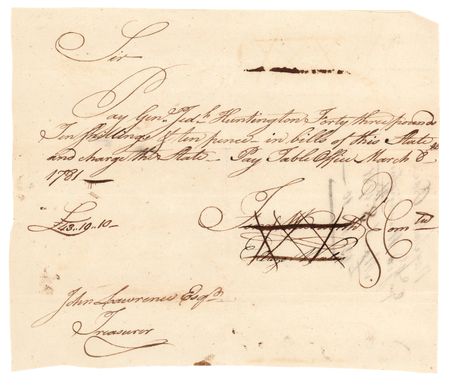 Sir
Pay Genl. Jedh. Huntington Forty three pounds
Ten shillings & ten pence in bills of this State
and charge the State Pay Table Office March 8th
1781
£43..10..10
Comtee
John Lawrence Esqr.
Treasurer